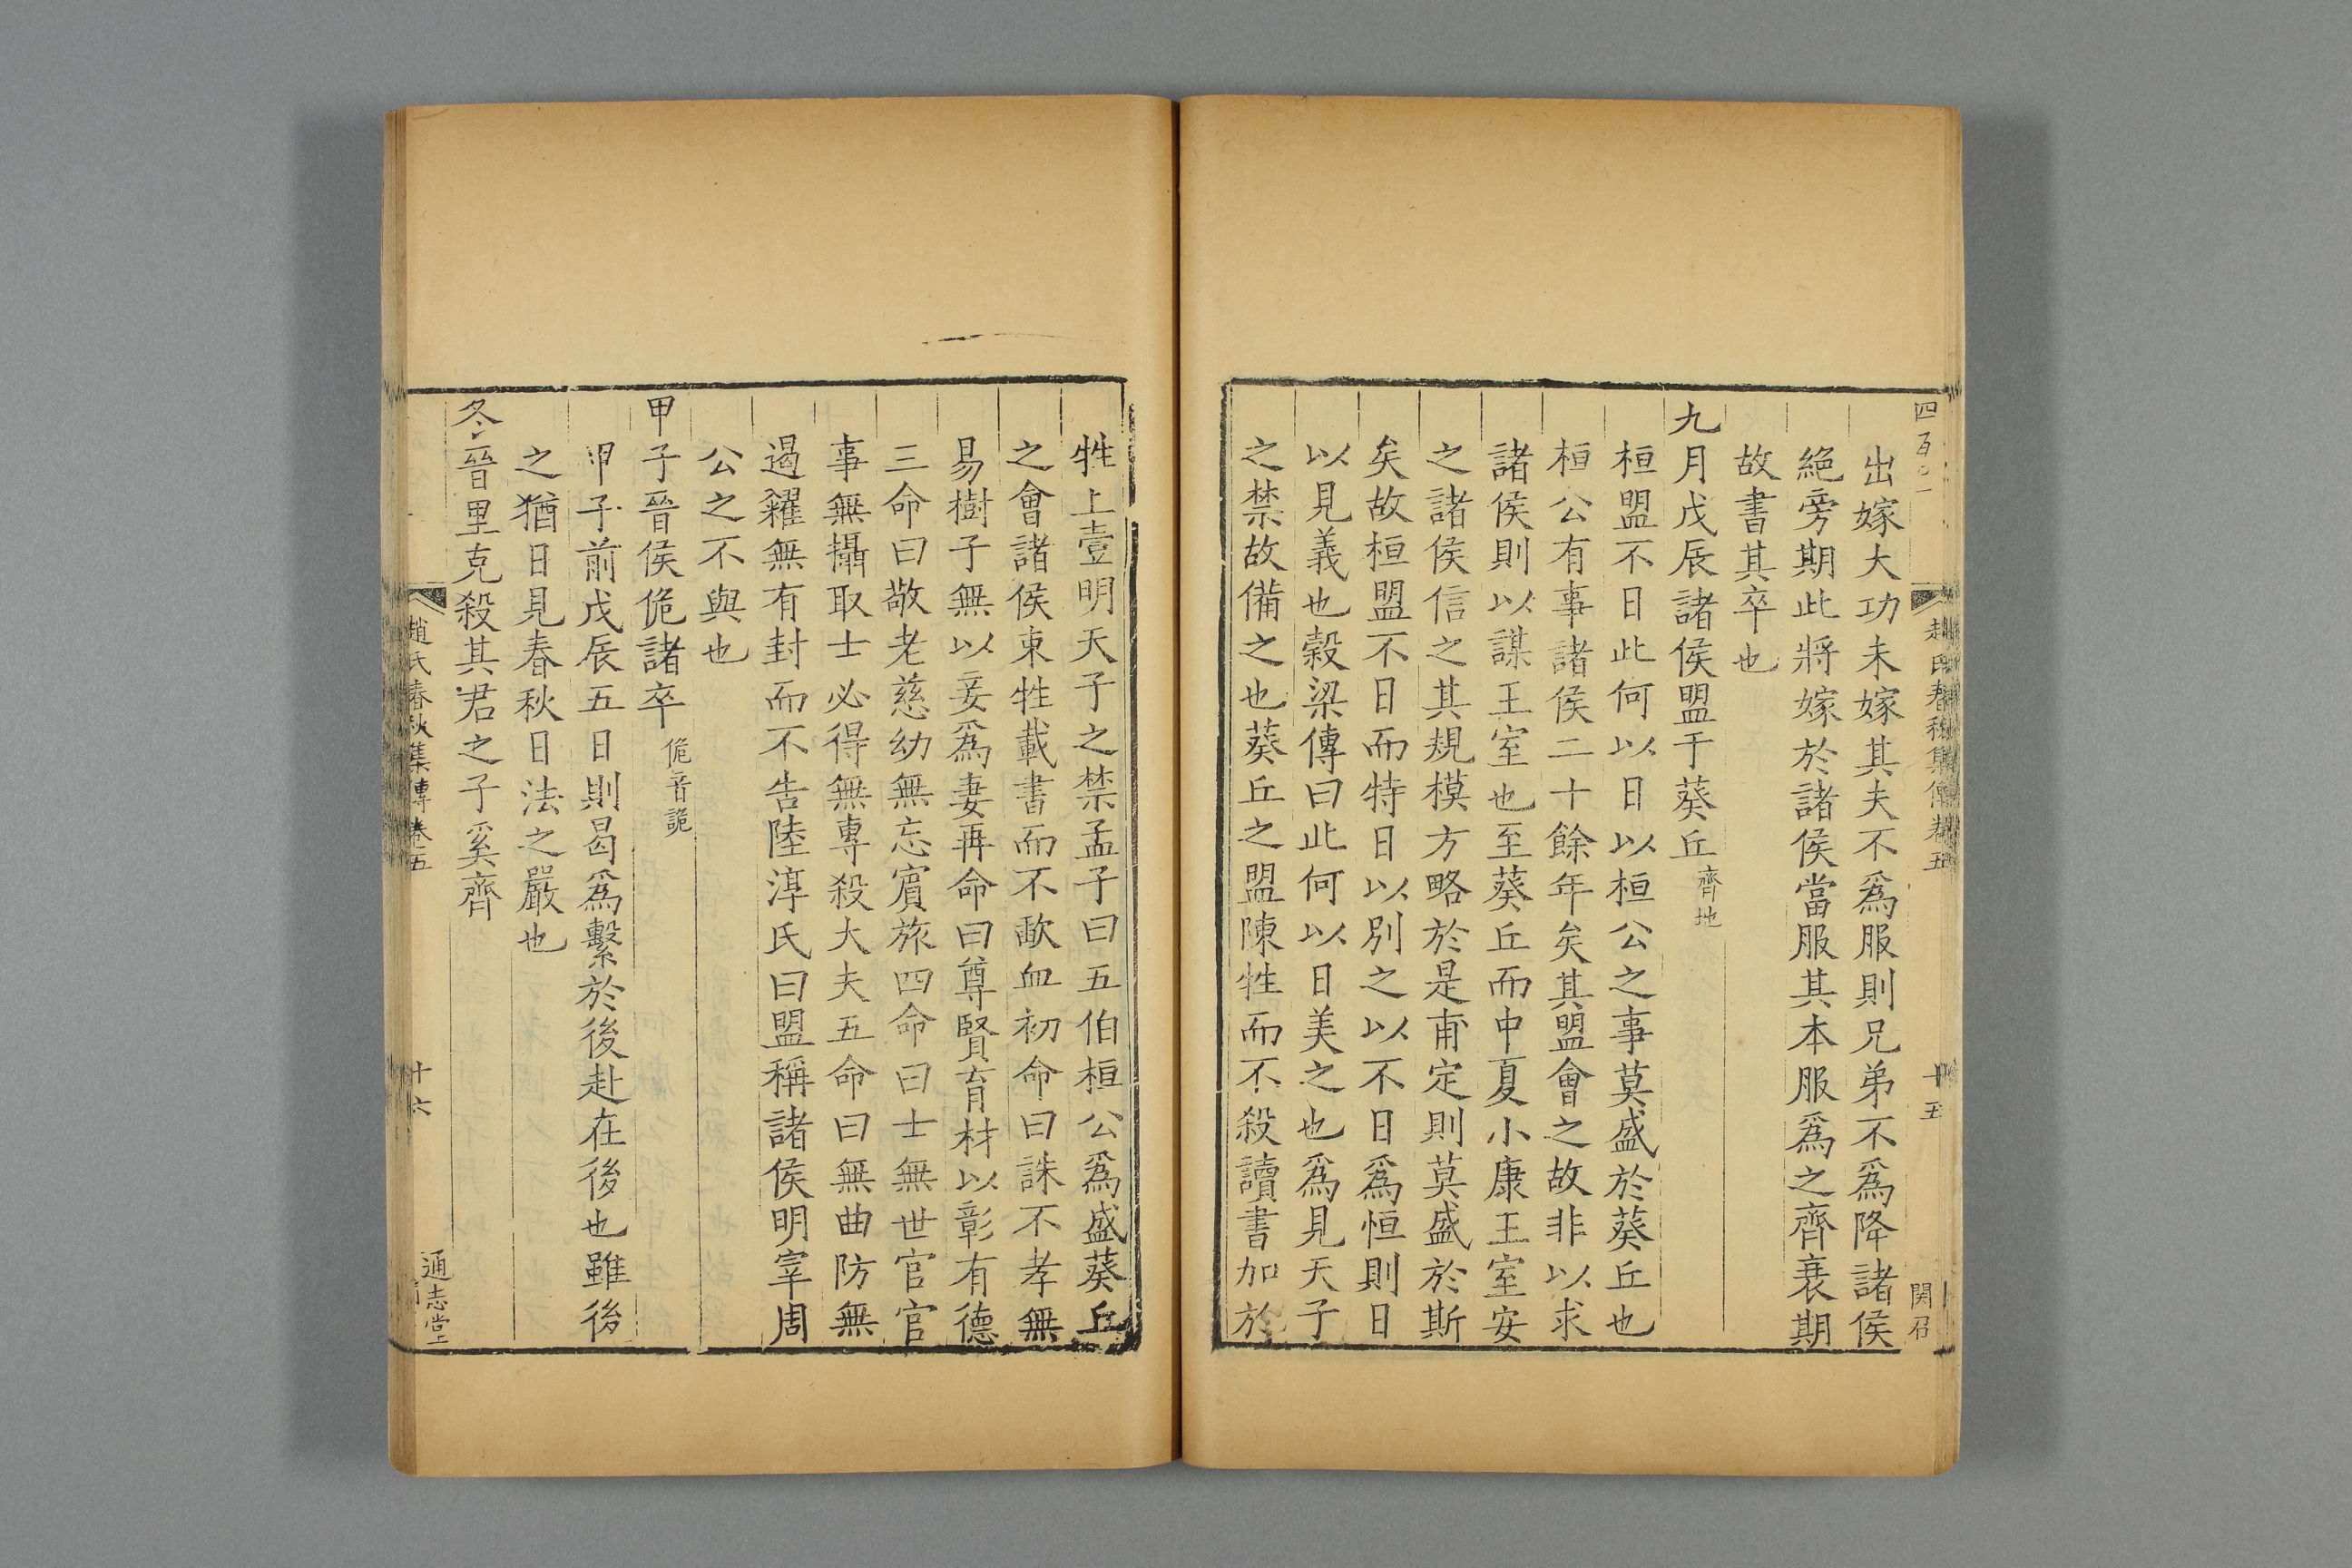 四百〇一
趙氏春秋集傳卷五
十五
関召
出嫁大功未嫁其夫不爲服則兄弟不爲降諸侯
絕旁期此將嫁於諸侯當服其本服爲之齊衰期
故書其卒也
九月戊辰諸侯盟于葵丘齊地
桓盟不日此何以日以桓公之事莫盛於葵丘也
桓公有事諸侯二十餘年矣其盟會之故非以求
諸侯則以謀王室也至葵丘而中夏小康王室安
之諸侯信之其規模方略於是甫定則莫盛於斯
矣故桓盟不日而特日以別之以不日爲恒則日
以見義也穀梁傳曰此何以日美之也爲見天子
之禁故備之也葵丘之盟陳牲而不殺讀書加於
牲上壹明天子之禁孟子曰五伯桓公爲盛葵丘
之會諸侯束牲載書而不歃血初命曰誅不孝無
易樹子無以妾爲妻再命曰尊賢育材以彰有德
三命曰敬老慈幼無忘賓旅四命曰士無世官官
事無攝取士必得無專殺大夫五命曰無曲防無
遏糴無有封而不告陸淳氏曰盟稱諸侯明宰周
公之不與也
甲子晉侯佹諸卒佹音詭
甲子前戊辰五日則曷爲繫於後赴在後也雖後
之猶日見春秋日法之嚴也
冬晉里克殺其君之子奚齊
趙氏春秋集傳卷五
十六
通志堂